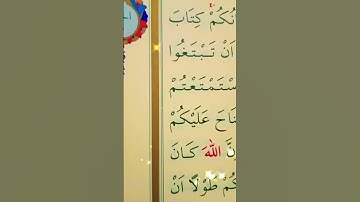 نُكُمْ كِتَابَ
اَنْ تَبْتَغُوا
سْتَمْتَعْتُمْ
نَاحَ عَلَيْكُمْ
نَّ اللّٰهَ كَانَ
كُمْ طَوْلًا اَنْ